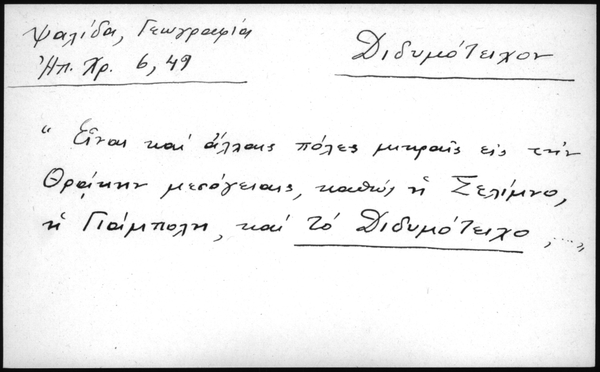 Ψαλίδα, Γεωγραφία
Ἠπ. Χρ. 6, 49
Διδυμότειχον
"Εἶναι καί ἄλλαις πόλες μικραῖς εἰς τήν
Θράκην μεσόγειαις, καθώς ἡ Σελίμνο,
ἡ Γιάμπολη, καί τό Διδυμότειχο, ...."